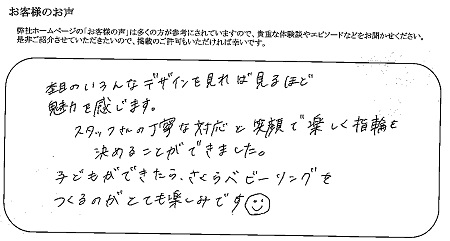 お客様のお声
弊社ホームページの「お客様の声」は多くの方が参考にされていますので、貴重な体験談やエピソードなどをお聞かせください。
是非ご紹介させていただきたいので、掲載のご許可もいただければ幸いです。
杢目のいろんなデザインを見れば見るほど
魅力を感じます。
スタッフさんの丁寧な対応と笑顔で楽しく指輪を
決めることができました。
子どもができたら、さくらベビーリングを
つくるのがとても楽しみです